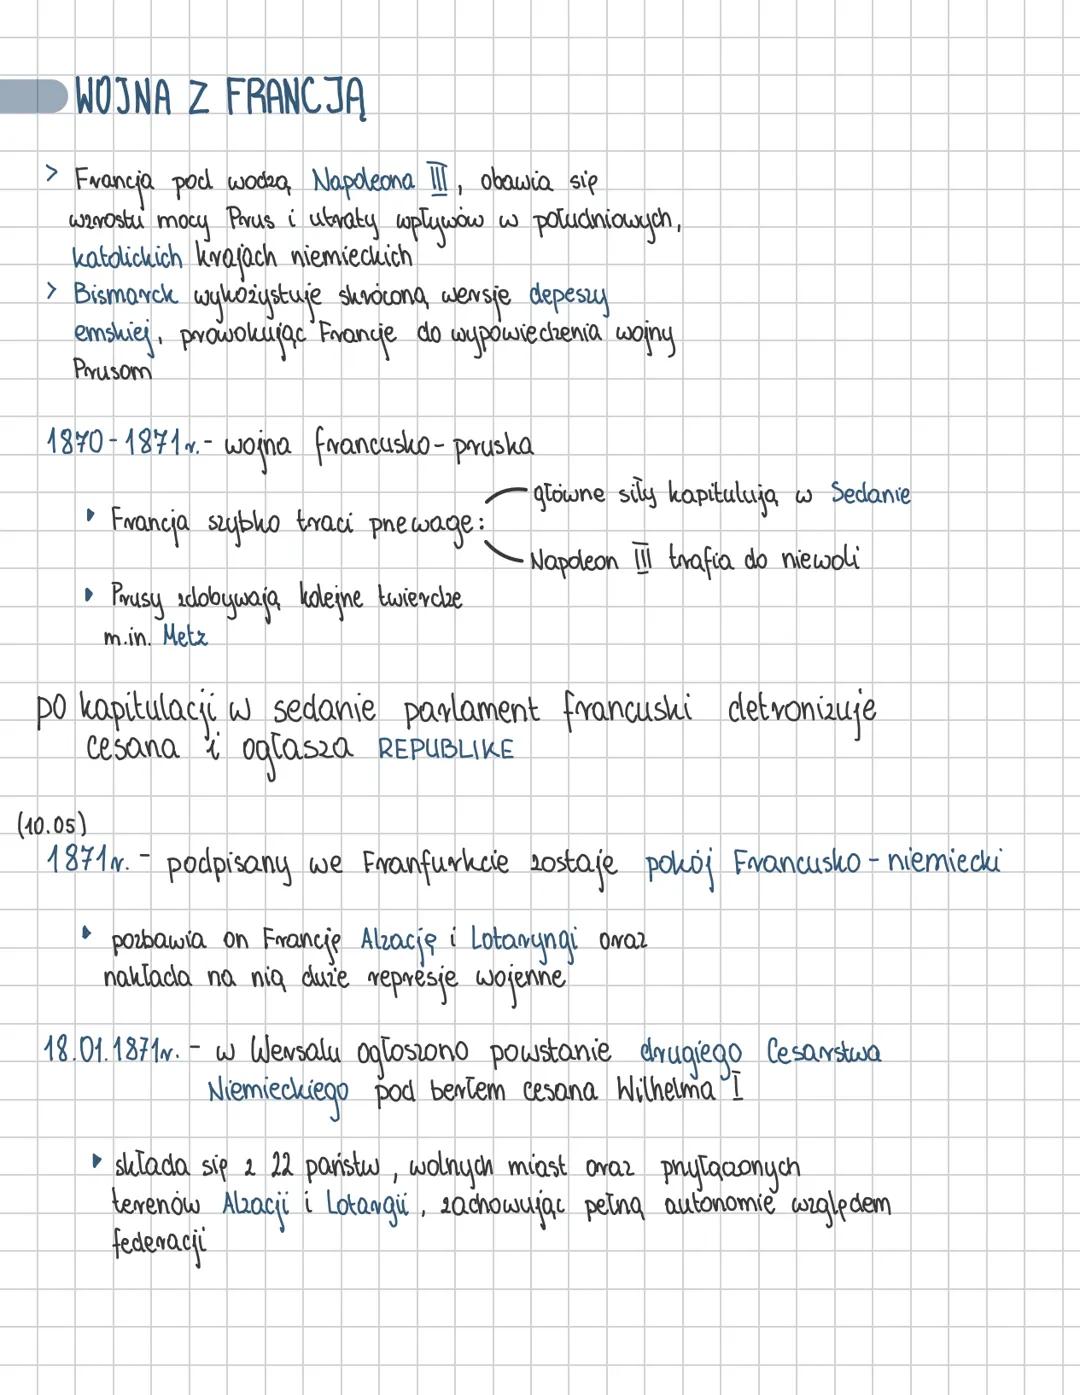 WOJNA Z FRANCJĄ
> Francja pod wodzą Napoleona III, obawia się
wzrostu mocy Prus i utraty wpływów w południowych,
katolickich krajach niemieckich
> Bismarck wykożystuje skróconą wersję depeszy
emskiej, prowokując Francje do wypowiedzenia wojny
Prusom
1870-1871r.- wojna francusko-pruska
Francja szybko traci przewage:
główne siły kapitulują w Sedanie
Napoleon III trafia do niewoli
Prusy zdobywają kolejne twierdze
m.in. Metz
po kapitulacji w sedanie parlament francuski detronizuje
cesarza i ogłasza REPUBLIKE
(10.05)
1871r. - podpisany we Franfurkcie zostaje pokój Francusko-niemiecki
pozbawia on Francję Alzację i Lotaryngi oraz
nakłada na nią duże represje wojenne
18.01.1871r. - w Wersalu ogłoszono powstanie drugiego Cesarstwa
Niemieckiego pod berłem cesarza Wilhelma I
składa się z 22 państw, wolnych miast oraz przyłączonych
terenów Alzacji i Lotargii, zachowując pełną autonomie względem
federacji